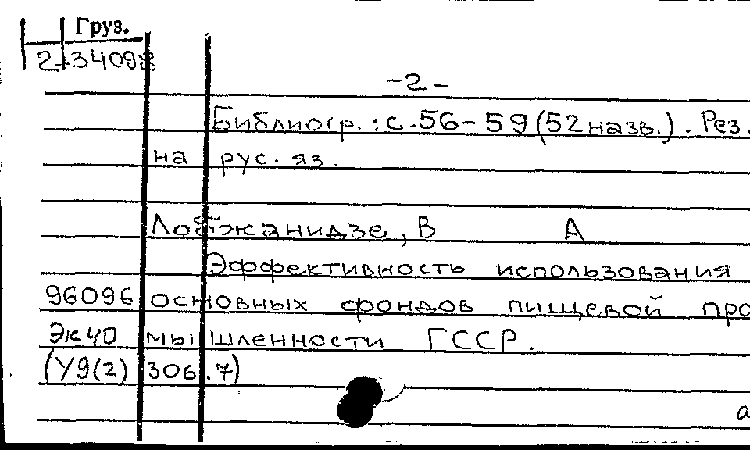 Груз.
2-34098
-2-
Библиогр.: с.56-59 (52 назв.). Рез.
на рус. яз.
Лобжанидзе, В А
Эффективность использования
96096 основных фондов пищевой про
Эк40 мышленности ГССР.
(У9(2)306.7)
а